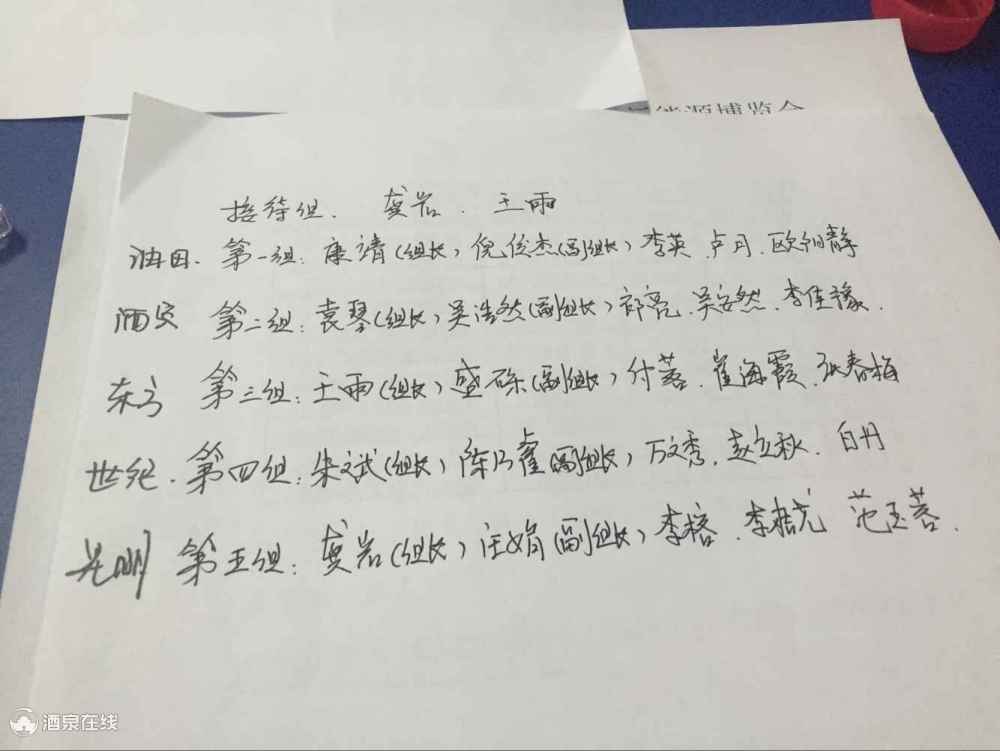 能源博览会
接待组. 龚岩. 王雨
油田. 第一组: 康靖(组长) 倪俊杰(副组长) 李英. 卢月. 欧阳静
酒安 第二组: 袁琴(组长) 吴浩然(副组长) 郭亮. 吴安然. 李佳豫.
东方 第三组: 王雨(组长) 盛砾(副组长) 付蓉. 崔海霞. 张春梅
世纪. 第四组: 朱文斌(组长) 陈乃睿(副组长) 万文秀. 赵立秋. 白丹
光明 第五组: 龚岩(组长) 汪娟(副组长) 李榕. 范玉蓉.
酒泉在线